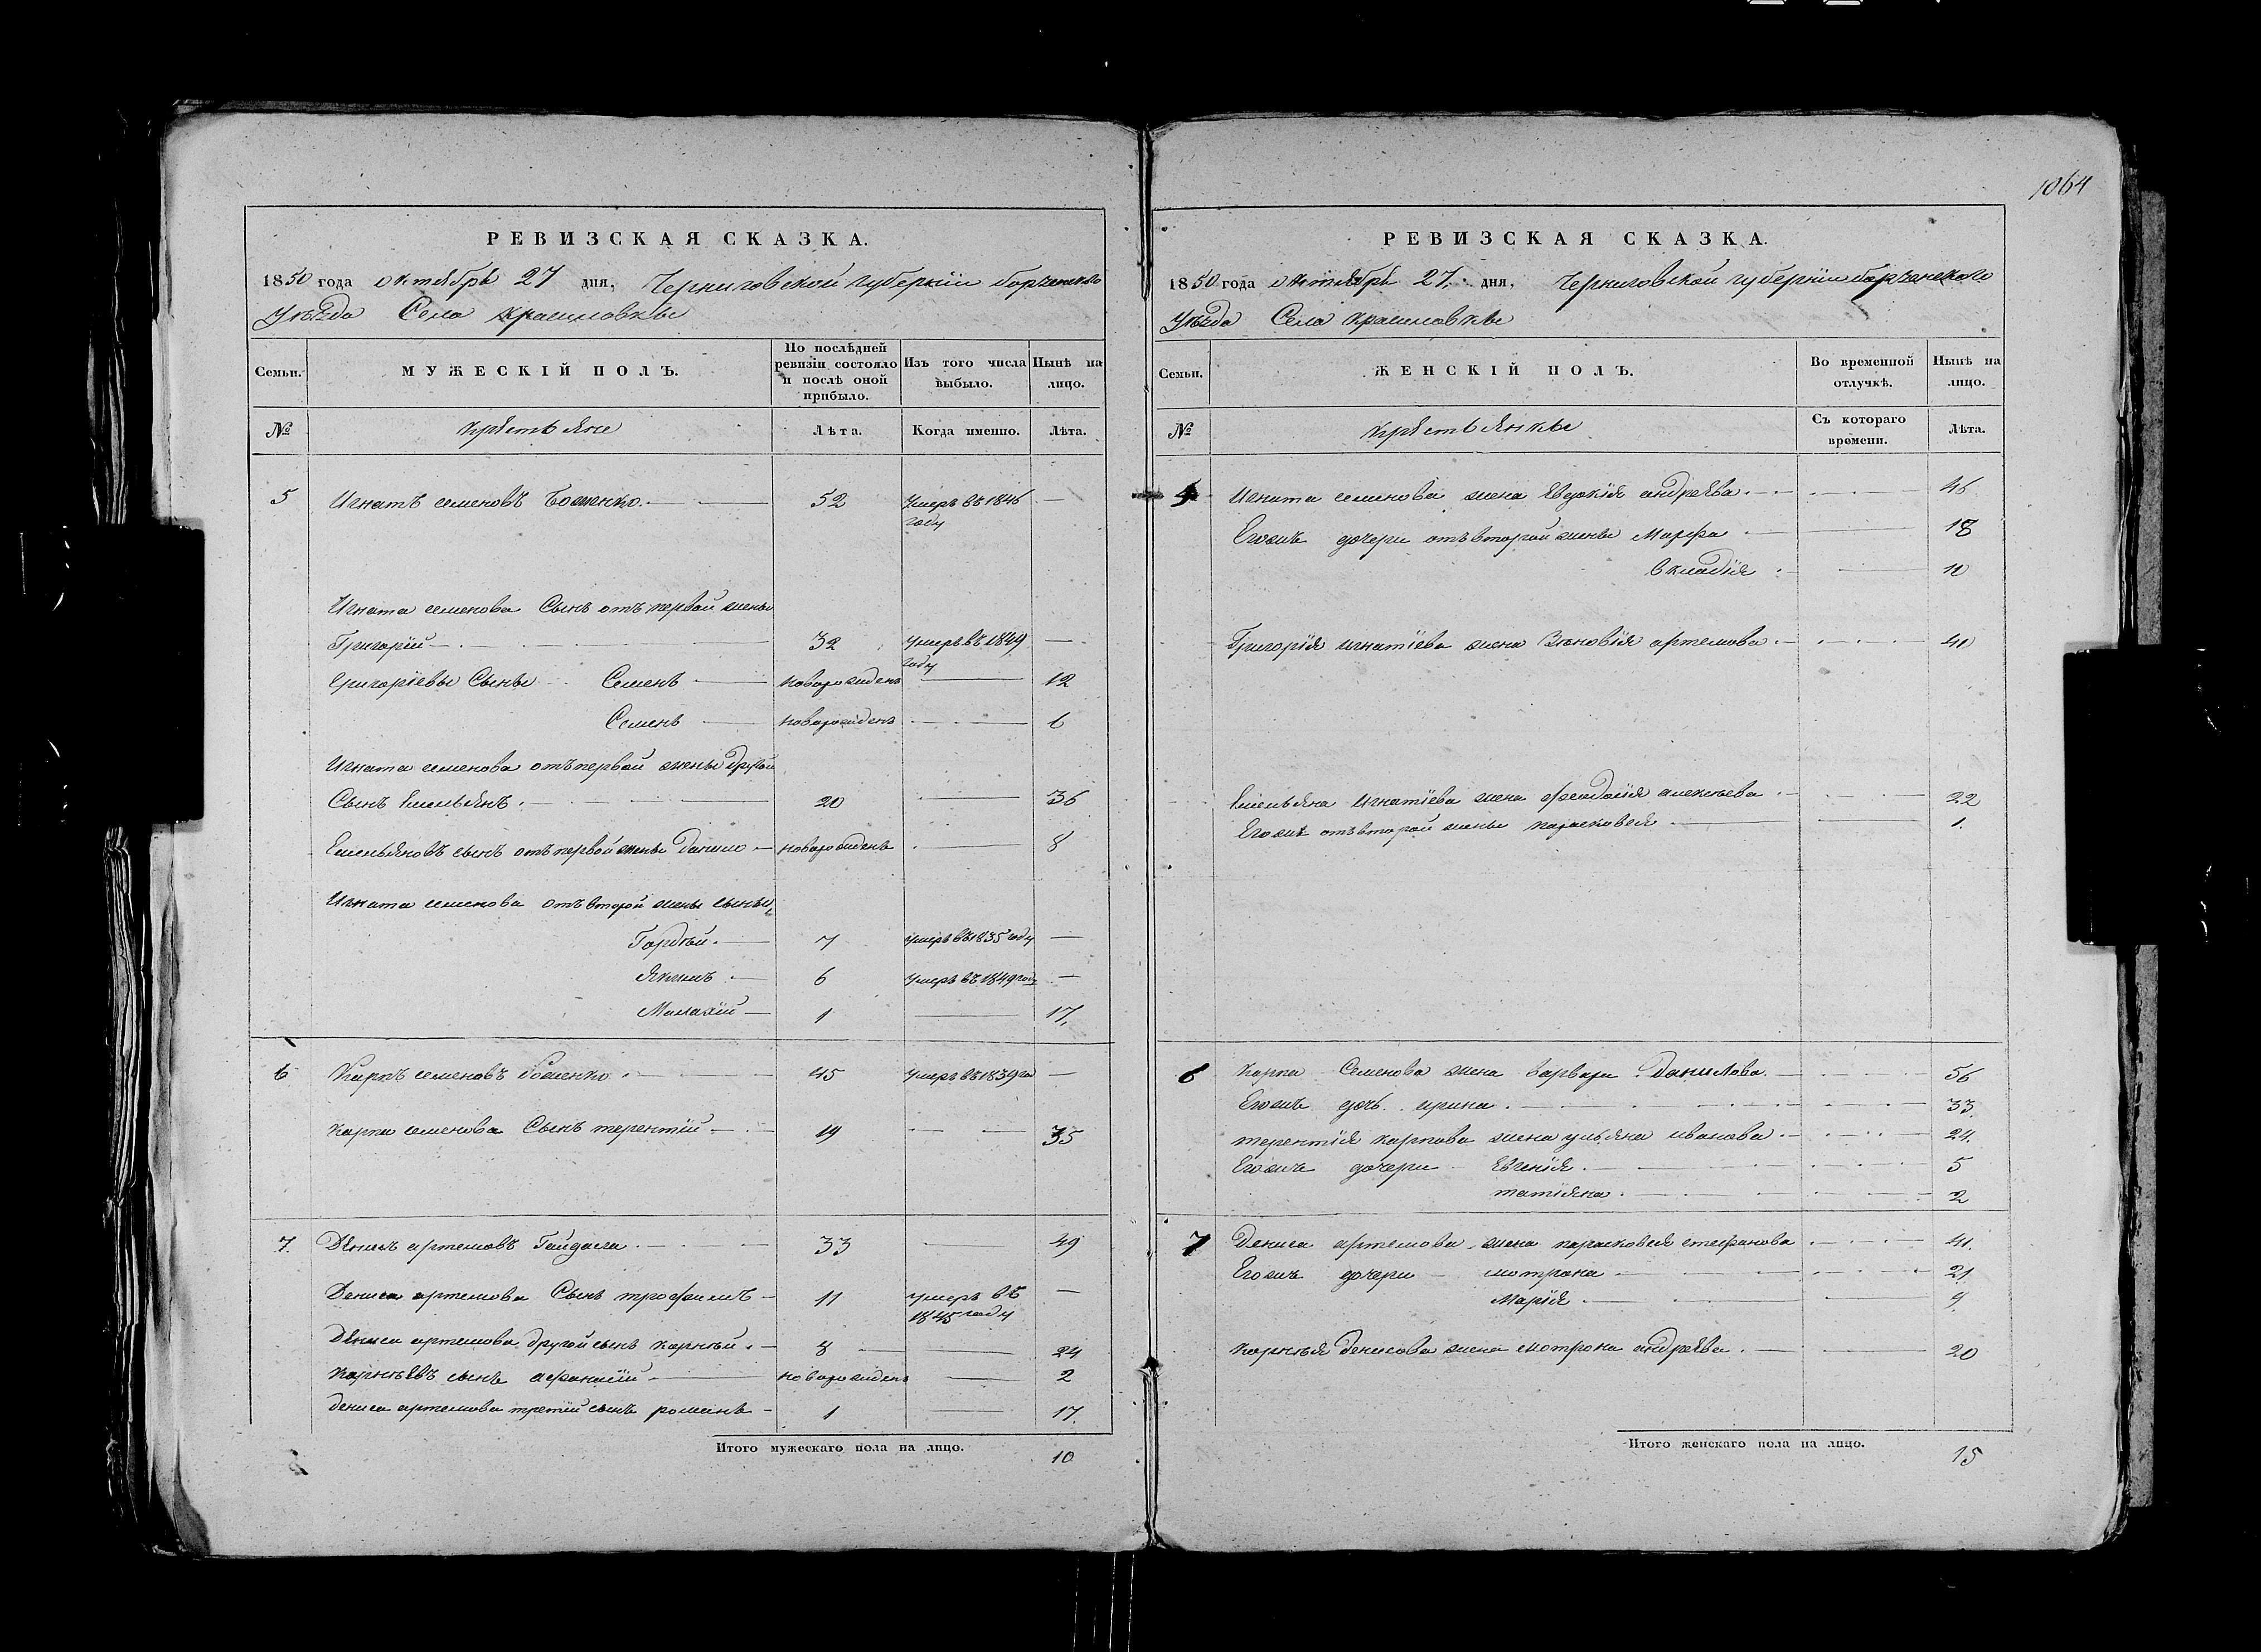 1064
РЕВИЗСКАЯ СКАЗКА.
1850 года октября 27 дня, Черниговской губернии борзенского
уѣзда Села Красиловки
Семьи.
МУЖЕСКІЙ ПОЛЪ.
По послѣдней ревизіи состояло и послѣ оной прибыло.
Изъ того числа выбыло.
Нынѣ на лицо.
№
крестьяне
Лѣта.
Когда именно.
Лѣта.
5 Игнатъ семеновъ 52 умеръ въ 1846 году —
Игната семенова Сынъ отъ первой жены
Григорій — 32 умеръ въ 1849 году —
Григоріевы Сыны Семенъ — новорожденъ — 12
Семенъ — новорожденъ — 6
Игната семенова отъ первой жены другой
Сынъ Емельянъ. — 20 — 36
Емельяновъ сынъ отъ первой жены Данило — новорожденъ — 8
Игната семенова отъ второй жены сыны
Гордѣй. — 7 умеръ въ 1835 году —
Якимъ — 6 умеръ въ 1849 году —
Малахій — 1 — 17.
6 Карпъ семеновъ 45 умеръ въ 1839 го —
Карпа семенова Сынъ терентій — 19 — 35
7. Денисъ артемовъ 33 — 49
Дениса артемова Сынъ трофимъ — 11 умеръ въ 1845 году —
Дениса артемова другой сынъ корнѣй. — 8 — 24
Корнѣевъ сынъ афанасій — новорожденъ — 2
Дениса артемова третій сынъ романъ — 1 — 17.
Итого мужескаго пола на лицо. 10
РЕВИЗСКАЯ СКАЗКА.
1850 года октября 27. дня, Черниговской губерніи борзенского
уѣзда Села Красиловки
Семьи.
ЖЕНСКІЙ ПОЛЪ.
Во временной отлучкѣ.
Нынѣ на лицо.
№
крестьянки
Съ котораго времени.
Лѣта.
5 Игната семенова жена Евдокія андреева — 46
Егожъ дочери отъ второй жены Марфа — 18
Григорія игнатіева жена Зѣновія артемова — 40
Емельяна Игнатіева жена феодосія алексѣева — 22
Егожъ отъ второй жены парасковея — 1.
6 Карпа Семенова жена варвара Данилова — 56
Егожъ дочь ирина. — 33.
терентія карпова жена ульяна иванова — 24.
Егожъ дочери Евгенія. — 5
татіяна. — 2
7 Дениса артемова жена парасковея стефанова — 41.
Егожъ дочери — мотрона — 21
Марія — 9
Корнѣя денисова жена мотрона андреева. — 20
Итого женскаго пола на лицо. 15